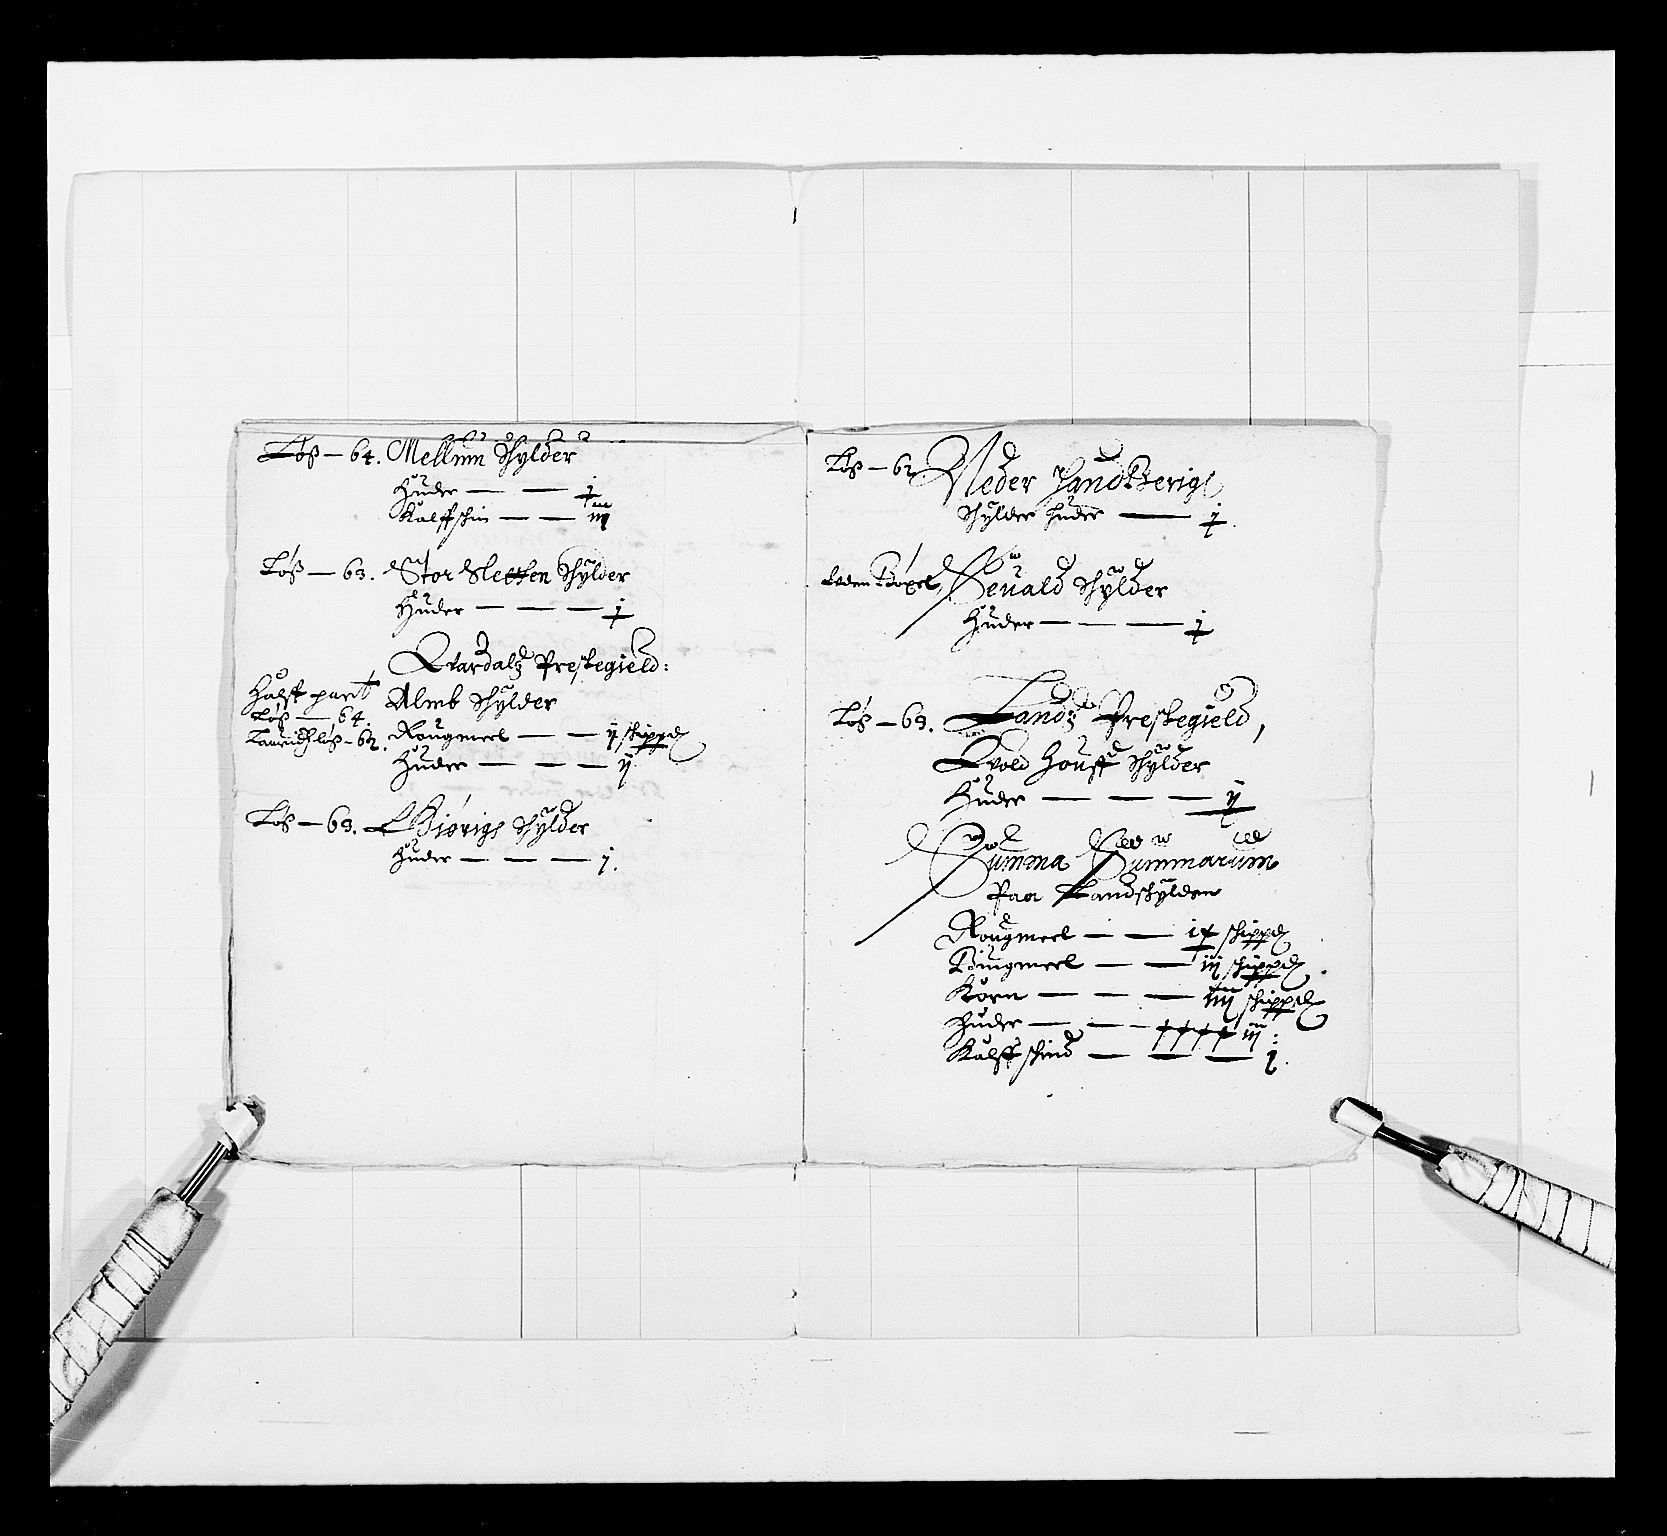 Løß — 64. Mellum Schylder
Huder — — j
Kalffschin — — iiij
Løß — 63. Stor Sletten Schylder
Huder — — — j
Vardalß Prestegield:
Halff part Almb Schylder
Løß — 64.
Rougmeel — — ij schippd
Løß – 62.
Huder — — — ij
Løß — 63. Biørigs Schylder
Huder — — — j.
Løß — 62 Neder Handberigs
Schylder huder — j.
Seuald Schylder
Huder — — — j
Løß — 63. Landz Prestegield,
Huold Houff Schylder
Huder — — — ij
Summa Summarum
Paa Landschylden
Rougmeel — — schippd
Biugmeel — — iij schippd.
Korn — — — iiij schippd
Huder — — — xxxx iij :
Kalffschind — — — j.